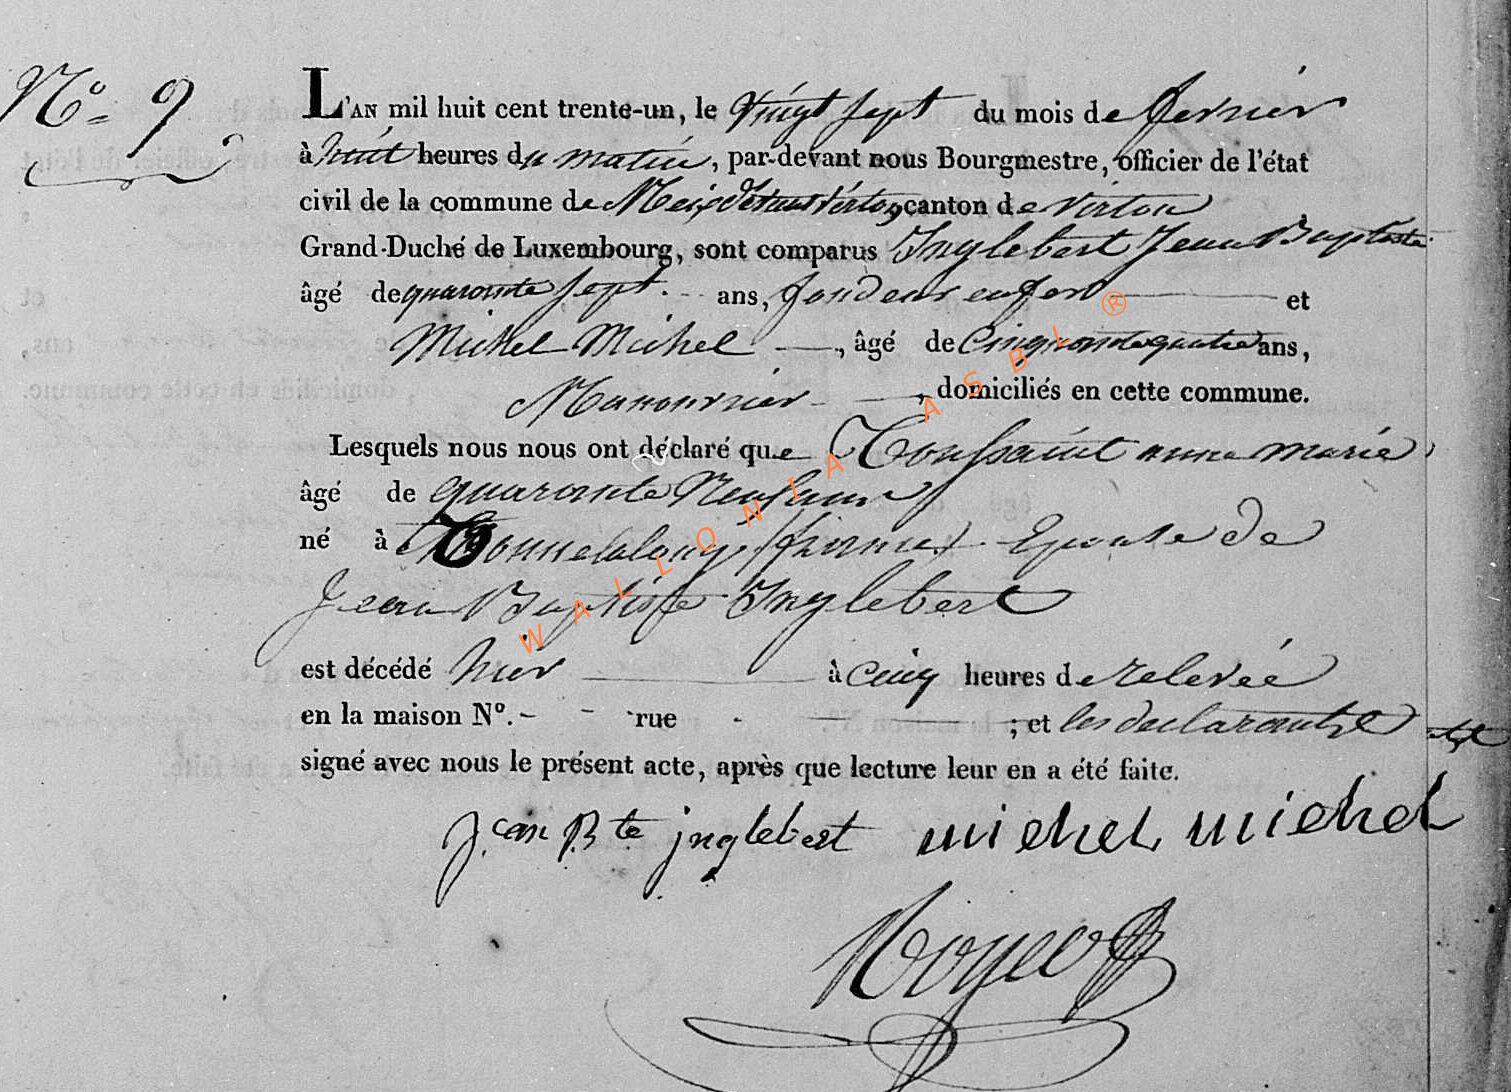 N° 9
L'AN mil huit cent trente-un, le vingt sept du mois de fevrier
à huit heures du matin, par-devant nous Bourgmestre, officier de l'état
civil de la commune de Meix devant Virton, canton de Virton
Grand-Duché de Luxembourg, sont comparus Inglebert Jean Baptiste
âgé de quarante sept ans, fondeur en fer et
Michel Michel, âgé de cinquante quatre ans,
Manouvrier, domiciliés en cette commune.
Lesquels nous nous ont déclaré que Toussaint anne marie
âgé de quarante Neuf ans
né à (france) Epouse de
Jean Baptiste Inglebert
est décédé hier à cinq heures de relevée
en la maison N°. - - rue - ; et les declarants
signé avec nous le présent acte, après que lecture leur en a été faite.
Jean Bte inglebert michel michel
WALLONIA ASBL ®